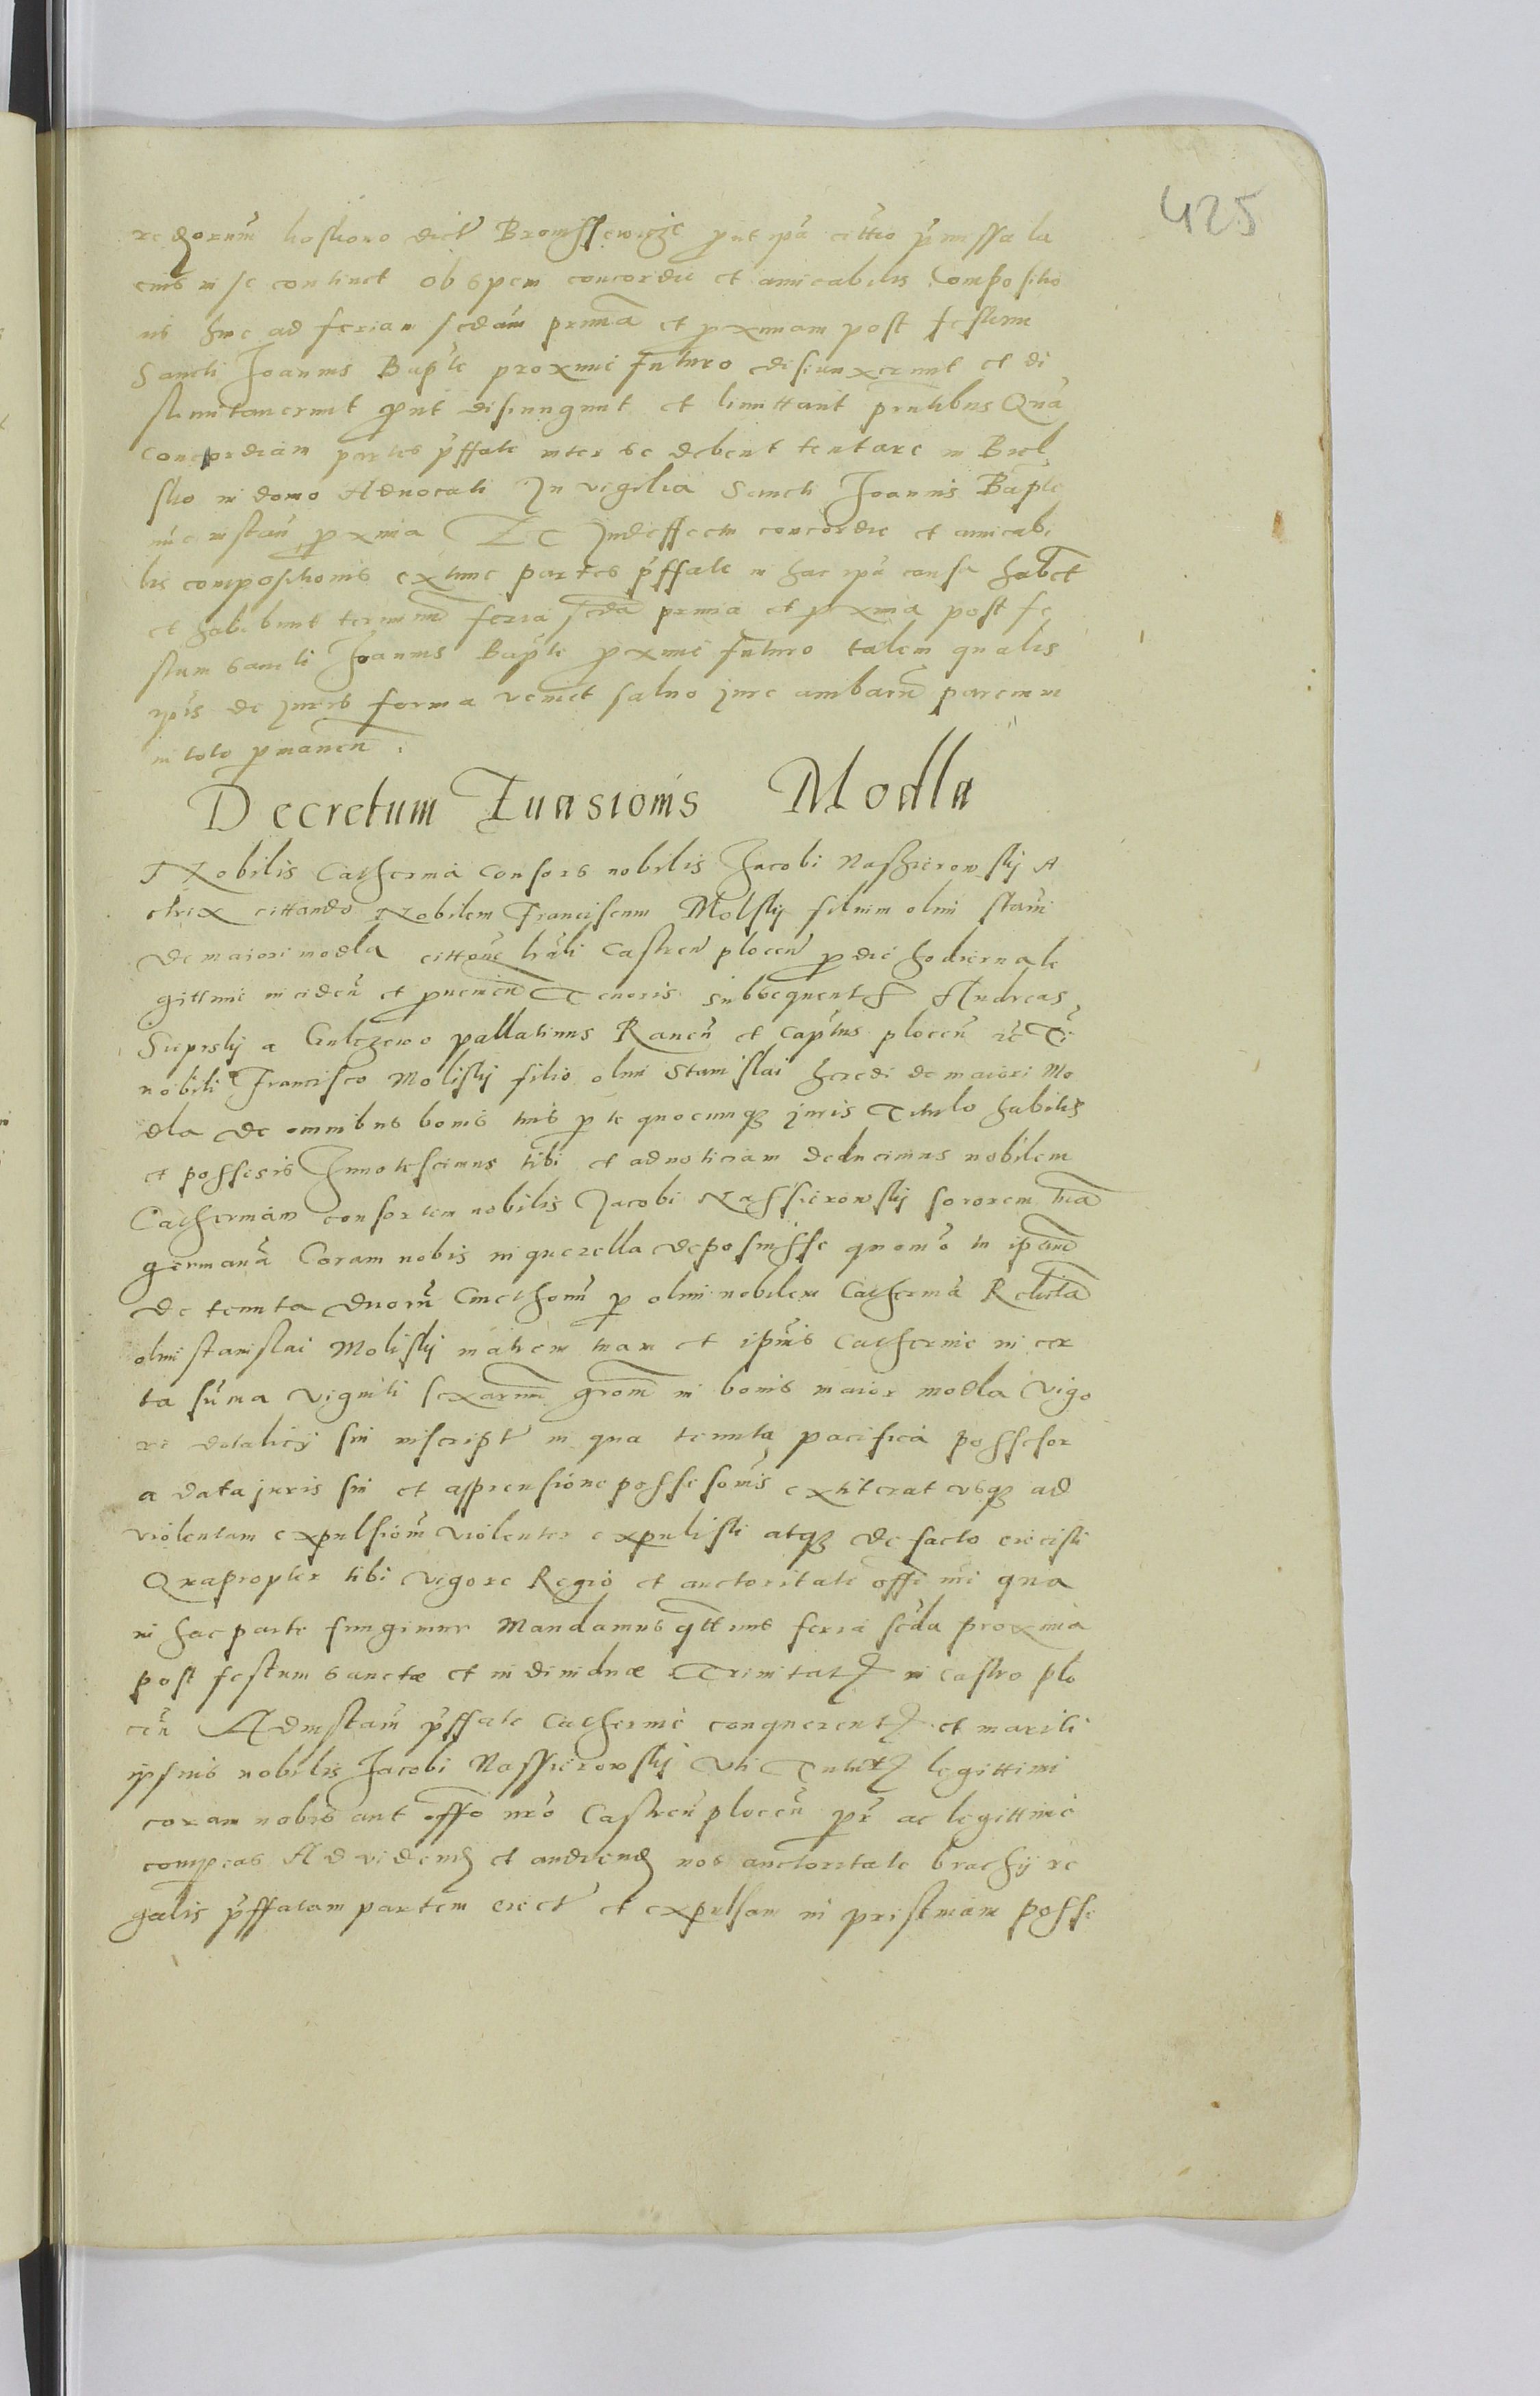 425
redorum hoskowo dict Bromssewicze put ipa cittio pmissa la
cius in se continet ob spem concordie et amicabilis Compositio
nis hinc ad feriam scdam primã et pximam post festum
Sancti Joannis Baptẽ proxime futuro disiunxerunt et di
stimitaverunt put disiungunt et limittant pntibus Quã
concordiam partes pffate inter se debent tentare in Biel
sko in domo Advocati In vigilia Sancti Joannis Baptẽ
nunc instañ pxima Et Indeffectu concordie et amicabi
lis compositionis extunc partes pffate in hac ipa causa habẽt
et habebunt terminũ feria scda prima et pxima post fe
stum sancti Joannis Baptẽ pxime futuro talem qualis
ipis de juris forma veniet salvo jure ambarũ parcium
in toto pmaneñ.
Decretum Evasionis Modla
Nobilis Catherina Consors nobilis Jacobi Nassierowskij A
ctrix cittando Nobilem Franciscum Molskij filium olim stañi
de maiori modla cittone lrali Castreñploceñ p die hodierna le
gittime incideñ et pvenieñ Tenoris subsequentis Andreas
Sieprskij a Gulczewo pallatinus Raveñ et Captus ploceñ etc Ti
nobili Francisco Moliskij filio olim Stanislai heredi de maiori Mo
dla de omnibus bonis tuis p te quocumq juris Titulo habitis
et possesis Innotescimus tibi et ad noticiam deducimus nobilem
Catherinam consortem nobilis Jacobi Nassierowskij sororem tuã
germanã Coram nobis in querella deposuisse quomo tu ipsam
de tenuta duorũ Cmethonũ p olim nobilem Catherinã Relictã
olim stanislai Moliskij matrem tuam et ipsius Catherine in cer
ta suma viginti sexarum grom in bonis maior modla vigo
re dotalicij sui inscript in qua tenuta pacifica possesor
a data juris sui et apprensione possesionis extiterat usq ad
violentam expulsionẽ violenter expulisti atq de facto eiecisti
Quapropter tibi vigore Regio et auctoritate offi nri qua
in hac parte fungimur Mandamus qttnus feria scda proxima
post festum sanctæ et individuæ Trinitatis in castro plo
ceñ Ad instañ pffate Catherine conquerentis et mariti
ipsius nobilis Jacobi Nassierowskij Uti Tutoris legittimi
coram nobis aut offo nro Castreñploceñ per ac legittime
compeas Ad videnď et audienď nos auctoritate brachij re
galis pffatam partem eiect et expulsam in pristinam posse